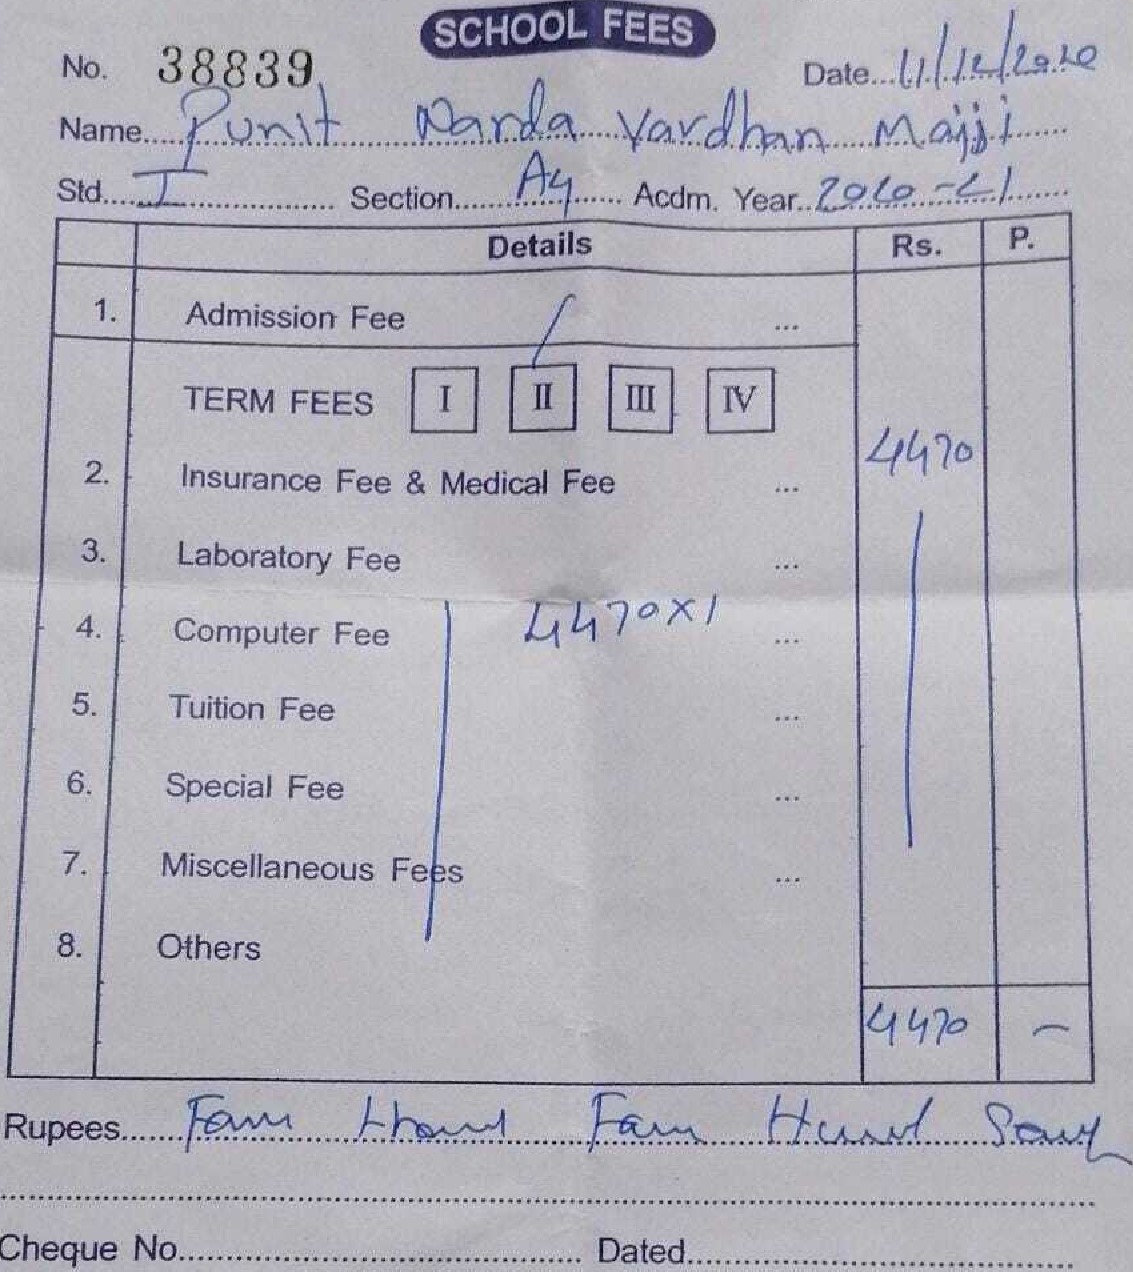 SCHOOL FEES
No. 38839 Date... 11/12/2020
Name..... Punit Narda Vardhan Majji
Std..... I Section..... A4 Acdm. Year.. 2020-21
Details Rs. P.
1. Admission Fee ...
TERM FEES I II III IV
4470
2. Insurance Fee & Medical Fee ...
3. Laboratory Fee ...
4. Computer Fee 4470x1 ...
5. Tuition Fee ...
6. Special Fee ...
7. Miscellaneous Fees ...
8. Others
4470 -
Rupees....... Four Hund
Cheque No.............................. Dated..............................